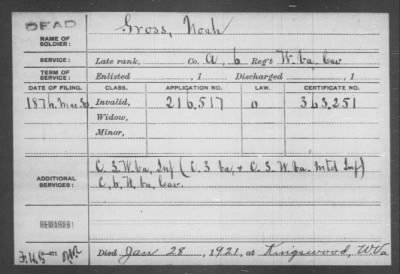 DEAD
NAME OF SOLDIER: Gross, Noah
SERVICE: Late rank, Co. A, 6 Reg't W. Va Cav
TERM OF SERVICE: Enlisted , 1 Discharged , 1
DATE OF FILING. CLASS. APPLICATION NO. LAW. CERTIFICATE NO.
1876 Mar 30 Invalid, 216,517 0 363,251
Widow,
Minor,
C. 3 W. Va, Inf (C. 3 Va, & C. 3. W. Va. Mtd Inf)
ADDITIONAL SERVICES: C, 6, W. Va, Cav.
REMARKS:
Died Jan 28, 1921, at Kingwood, W Va